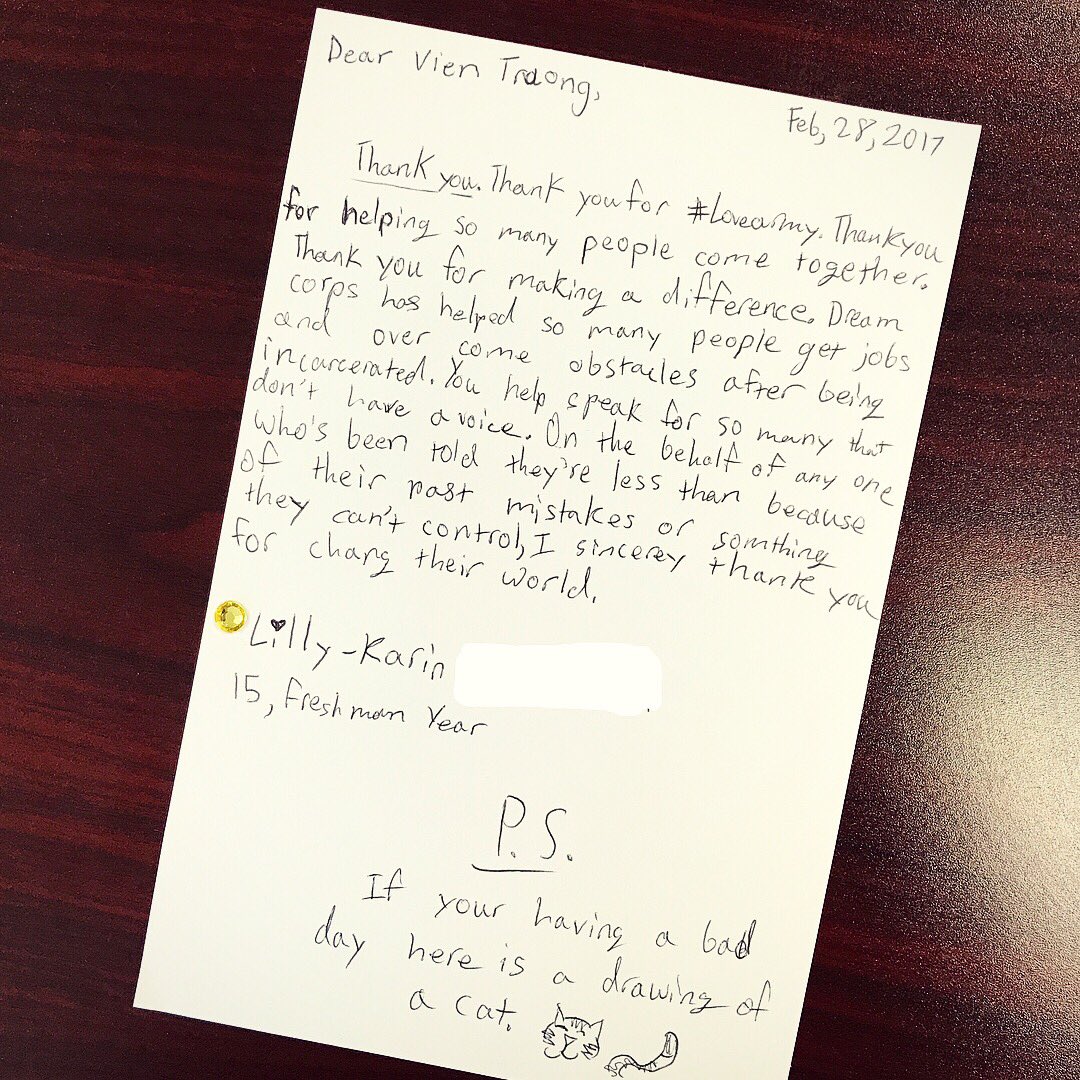 Dear Vien Traong,
Feb, 28, 2017
Thank you. Thank you for #Lovearmy. Thank you
for helping so many people come together.
Thank you for making a difference. Dream
corps has helped so many people get jobs
and over come obstacles after being
incarcerated. You help speak for so many that
don't have a voice. On the behalf of any one
who's been told they're less than because
of their past mistakes or somthing
they can't control, I sincerey thank you
for chang their world.
Lilly-Karin
15, Freshman Year
P.S.
If your having a bad
day here is a drawing of
a cat.